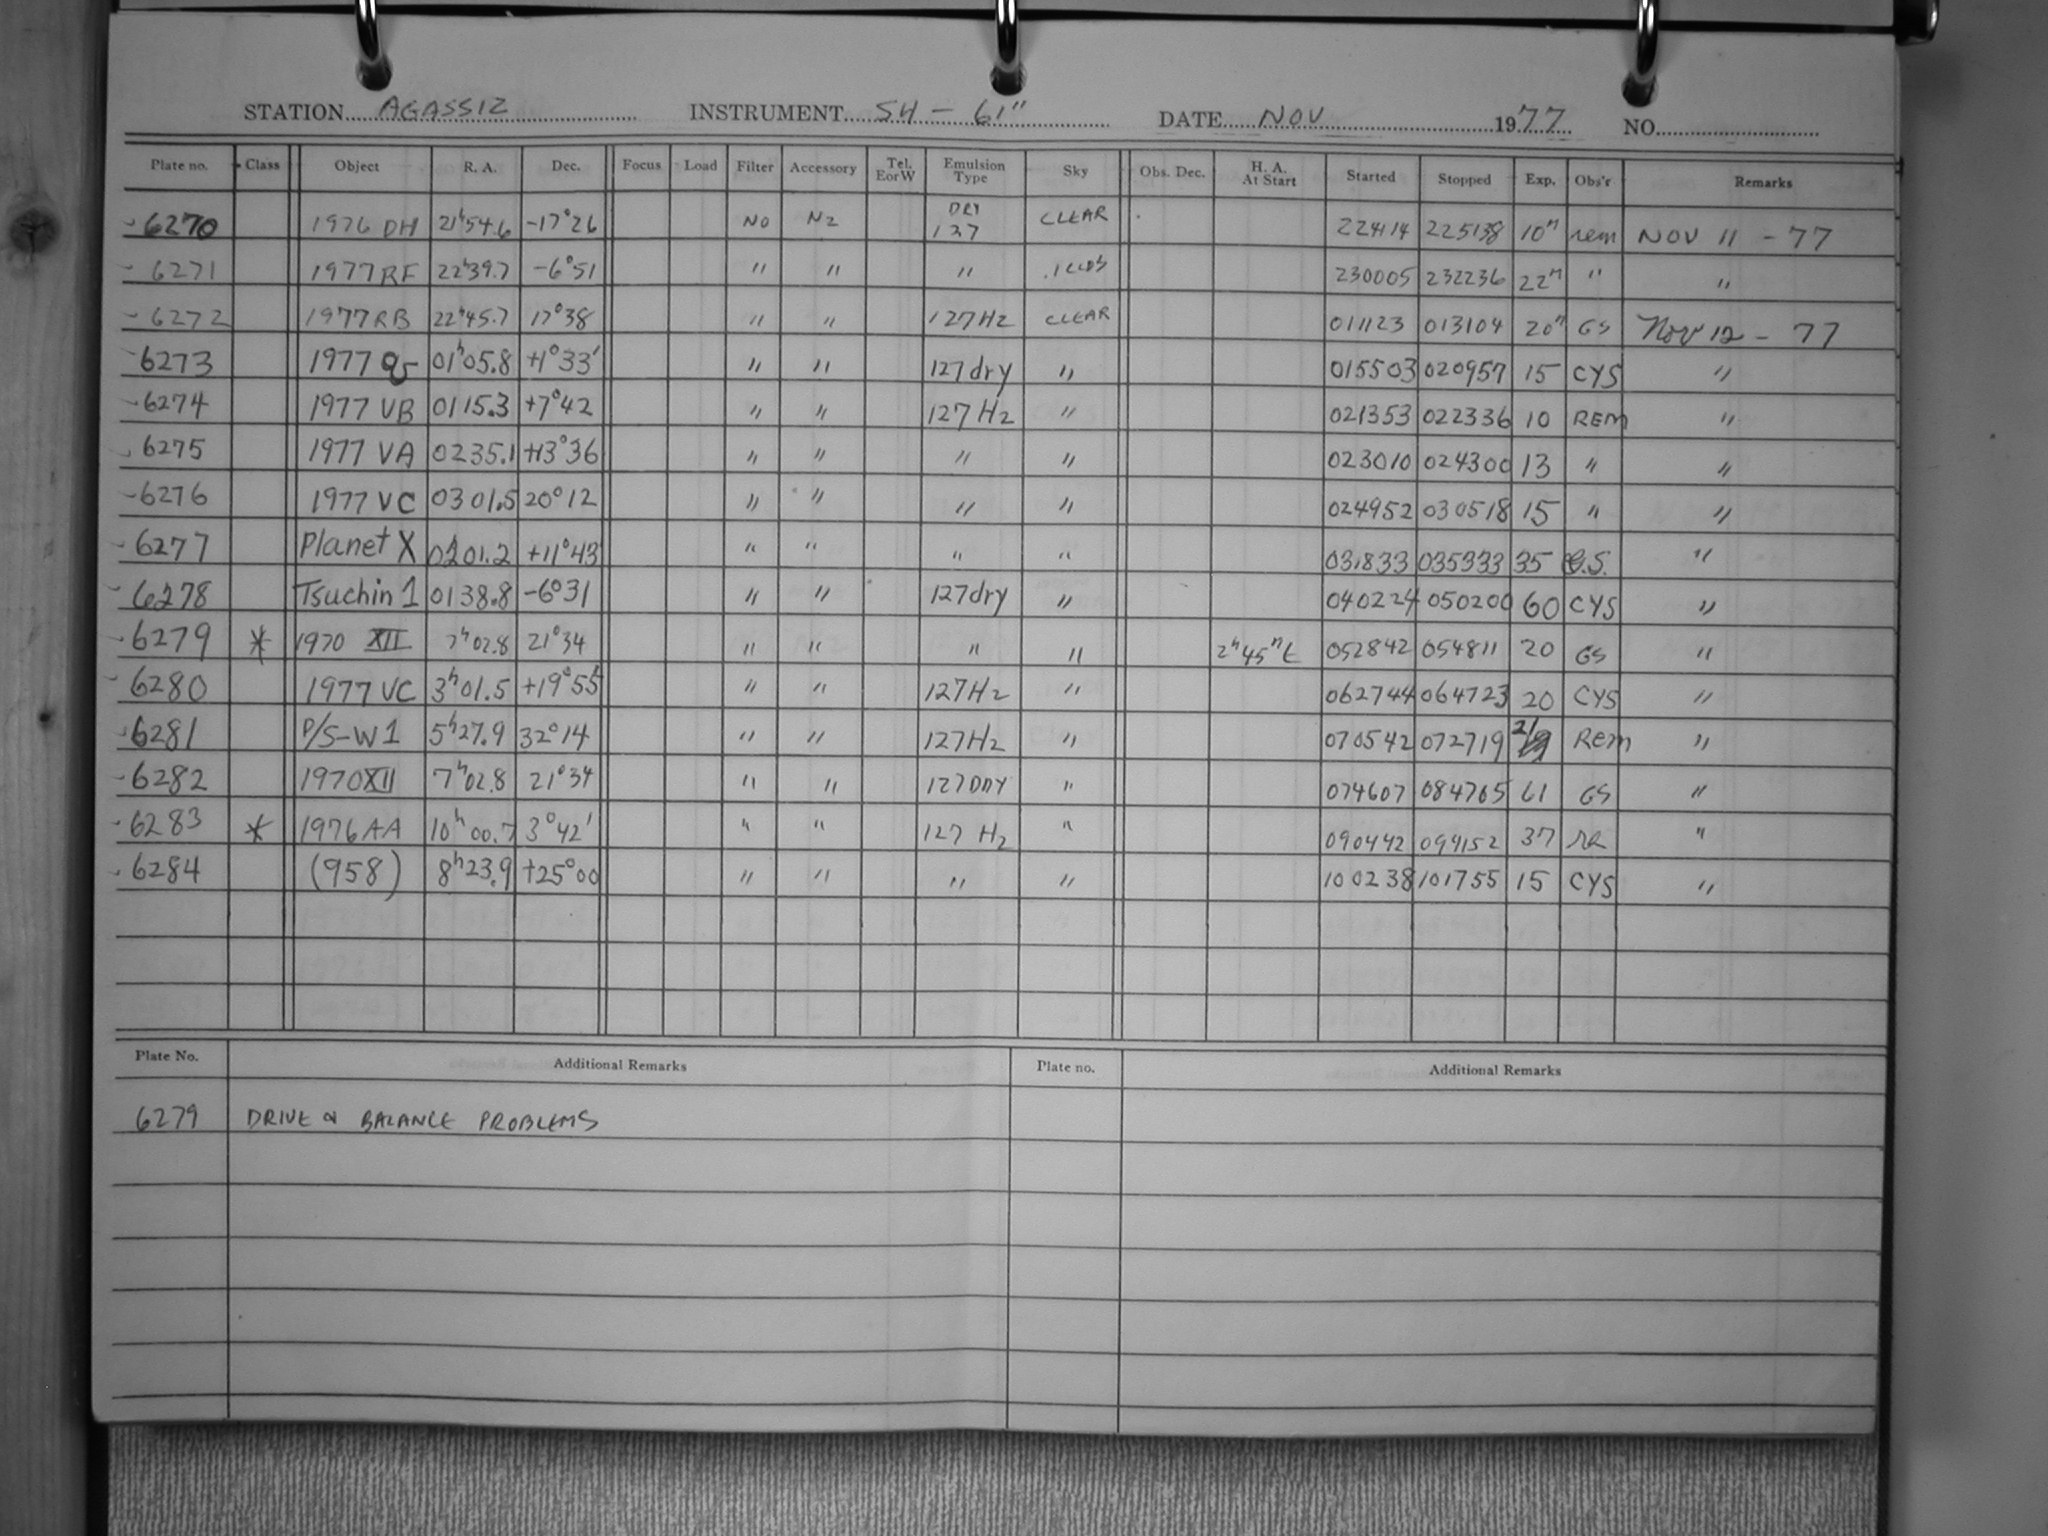 STATION AGASSIZ INSTRUMENT SH - 61" DATE NOV 1977 NO.
Plate no. Class Object R. A. Dec. Focus Load Filter Accessory Tel. E or W Emulsion Type Sky Obs. Dec. H. A. At Start Started Stopped Exp. Obs'r Remarks
6270 1976 DH 21h54.6 -17°26 NO N2 DRY 127 CLEAR 224114 225138 10m rem NOV 11 - 77
6271 1977 RF 22h39.7 -6°51 " " " 230005 232236 22m " "
6272 1977 RB 22h45.7 17°38 " " 127 H2 CLEAR 011123 013104 20m GS Nov 12 - 77
6273 1977 01h05.8 +1°33' " " 127 dry " 015503 020957 15 CYS "
6274 1977 VB 0115.3 +7°42 " " 127 H2 " 021353 022336 10 REM "
6275 1977 VA 0235.1 +13°36 " " " " 023010 024300 13 " "
6276 1977 VC 0301.5 20°12 " " " " 024952 030518 15 " "
6277 Planet X 0201.2 +11°43 " " " " 031833 035333 35 G.S. "
6278 Tsuchin 1 0138.8 -6°31 " " 127 dry " 040224 050200 60 CYS "
6279 * 1970 XII 7h02.8 21°34 " " " " 2h45m E 052842 054811 20 GS "
6280 1977 VC 3h01.5 +19°55' " " 127 H2 " 062744 064723 20 CYS "
6281 P/S-W 1 5h27.9 32°14 " " 127 H2 " 070542 072719 Rem "
6282 1970 XII 7h02.8 21°34 " " 127 DRY " 074607 084705 61 GS "
6283 * 1976 AA 10h00.7 3°42' " " 127 H2 " 090442 094152 37 "
6284 (958) 8h23.9 +25°00 " " " " 100238 101755 15 CYS "
Plate No. Additional Remarks Plate no. Additional Remarks
6279 DRIVE & BALANCE PROBLEMS